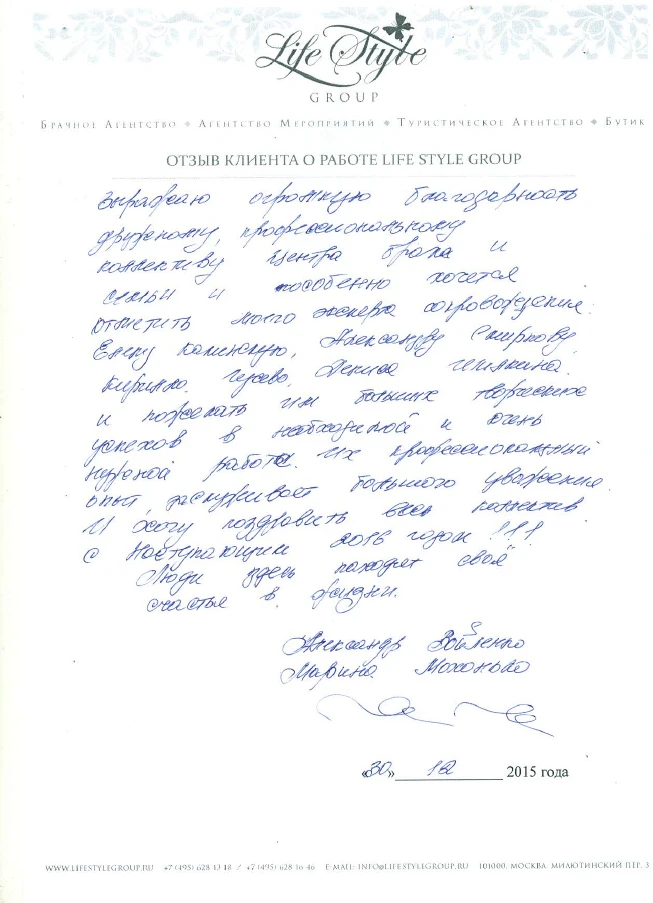 Life Style
GROUP
Брачное Агентство ◆ Агентство Мероприятий ◆ Туристическое Агентство ◆ Бутик
ОТЗЫВ КЛИЕНТА О РАБОТЕ LIFE STYLE GROUP
Выражаю огромную благодарность
дружному, профессиональному
коллективу центра брака и
семьи и особенно хочется
отметить моего эксперта сопровождения
Елену Каменскую, Александру Смирнову
Кирилла, Денис
и пожелать им больших творческих
успехов в необходимой и очень
нужной работе. Их профессиональный
опыт, заслуживает большого уважения
И хочу поздравить весь коллектив
с Наступающим 2016 годом !!!
Люди здесь находят своё
счастье в жизни.
Александр
Марина Моханько
«30» 12 2015 года
WWW.LIFESTYLEGROUP.RU +7 (495) 628 13 18 / +7 (495) 628 16 46 E-MAIL: INFO@LIFESTYLEGROUP.RU 101000, МОСКВА, МИЛЮТИНСКИЙ ПЕР. 3